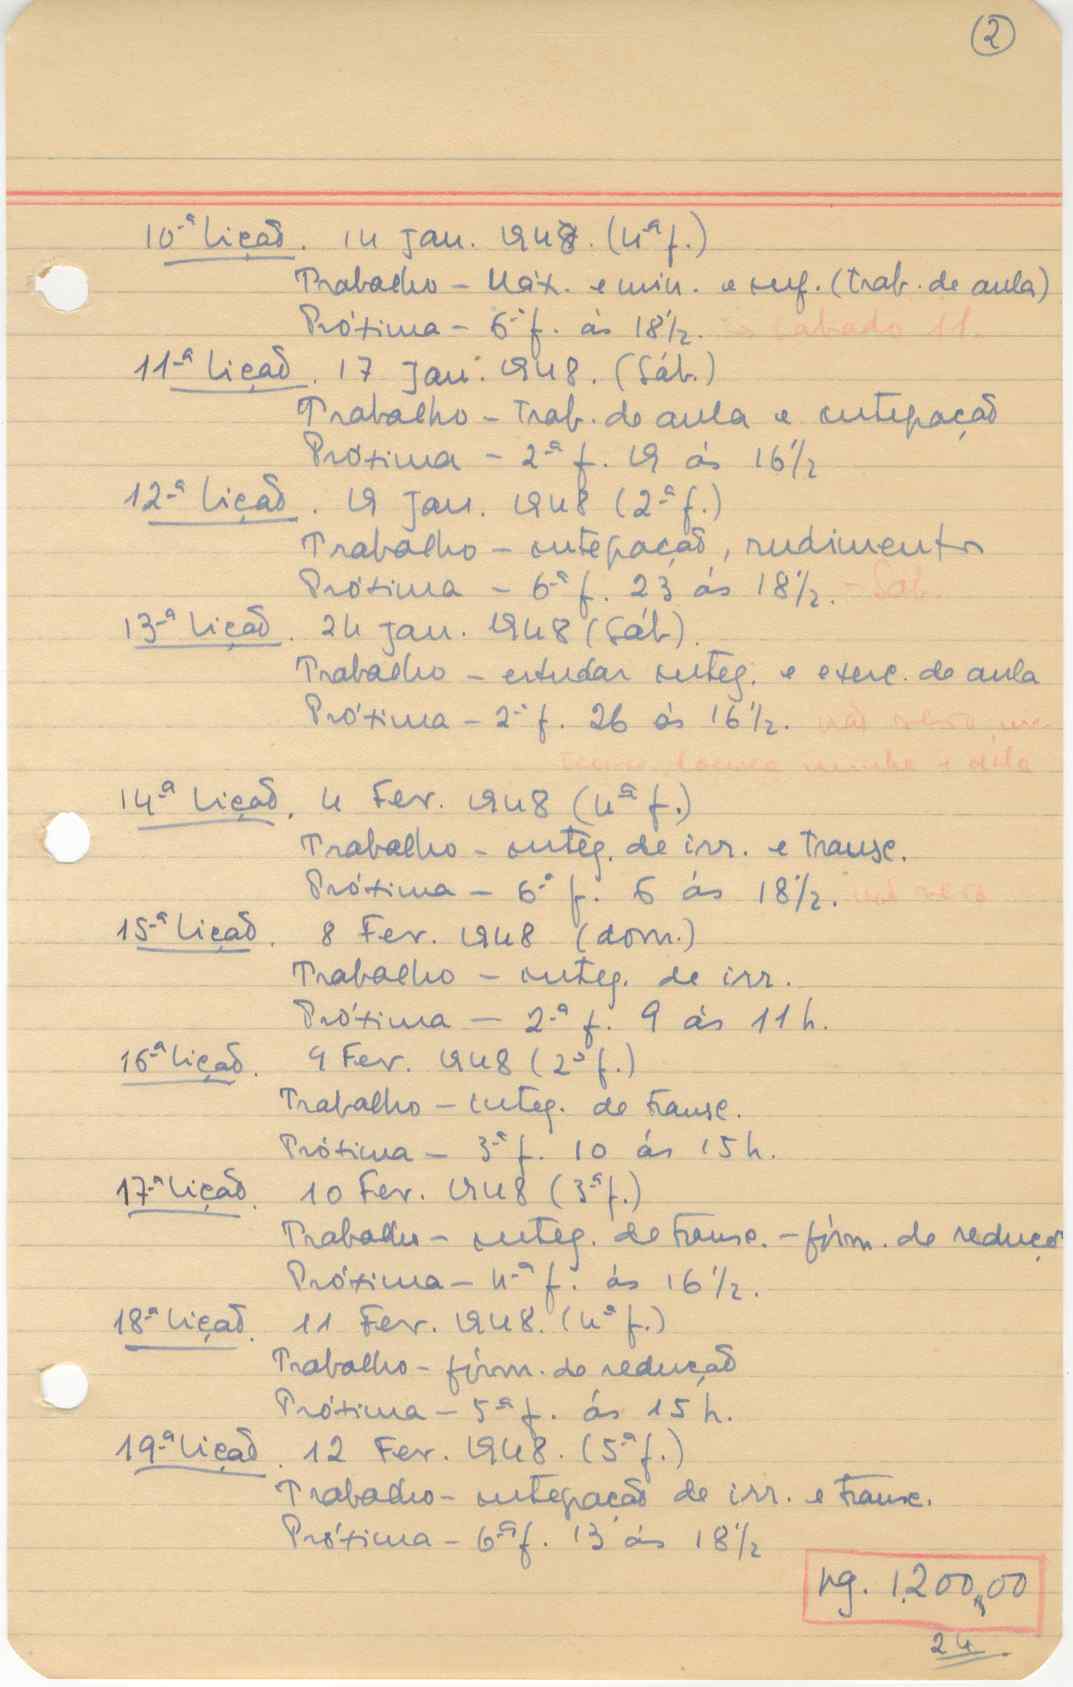 2
10.ª Lição. 14 Jan. 1948. (4.ª f.)
Trabalho – Máx. e min. e inf. (trab. de aula)
Próxima – 6.ª f. às 18½. sabado 11.
11.ª Lição. 17 Jan. 1948. (Sáb.)
Trabalho – trab. de aula e integração
Próxima – 2.ª f. 19 ás 16½
12.ª Lição. 19 Jan. 1948 (2.ª f.)
Trabalho – integração, rudimentos
Próxima – 6.ª f. 23 ás 18½. – Sáb.
13.ª Lição. 24 Jan. 1948 (Sáb).
Trabalho – estudar integ. e exerc. de aula
Próxima – 2.ª f. 26 ás 16½. não
14.ª Lição. 4 Fev. 1948 (4.ª f.)
Trabalho – integ. de irr. e transc.
Próxima – 6.ª f. 6 ás 18½.
15.ª Lição. 8 Fev. 1948 (dom.)
Trabalho – integ. de irr.
Próxima – 2.ª f. 9 ás 11 h.
16.ª Lição. 9 Fev. 1948 (2.ª f.)
Trabalho – integ. de transc.
Próxima – 3.ª f. 10 ás 15 h.
17.ª Lição. 10 Fev. 1948 (3.ª f.)
Trabalho – integ. de transc. – fórm. de redução
Próxima – 4.ª f. ás 16½.
18.ª Lição. 11 Fev. 1948. (4.ª f.)
Trabalho – fórm. de redução
Próxima – 5.ª f. ás 15 h.
19.ª Lição. 12 Fev. 1948. (5.ª f.)
Trabalho – integração de irr. e transc.
Próxima – 6.ª f. 13 ás 18½
pg. 1.200,00
24